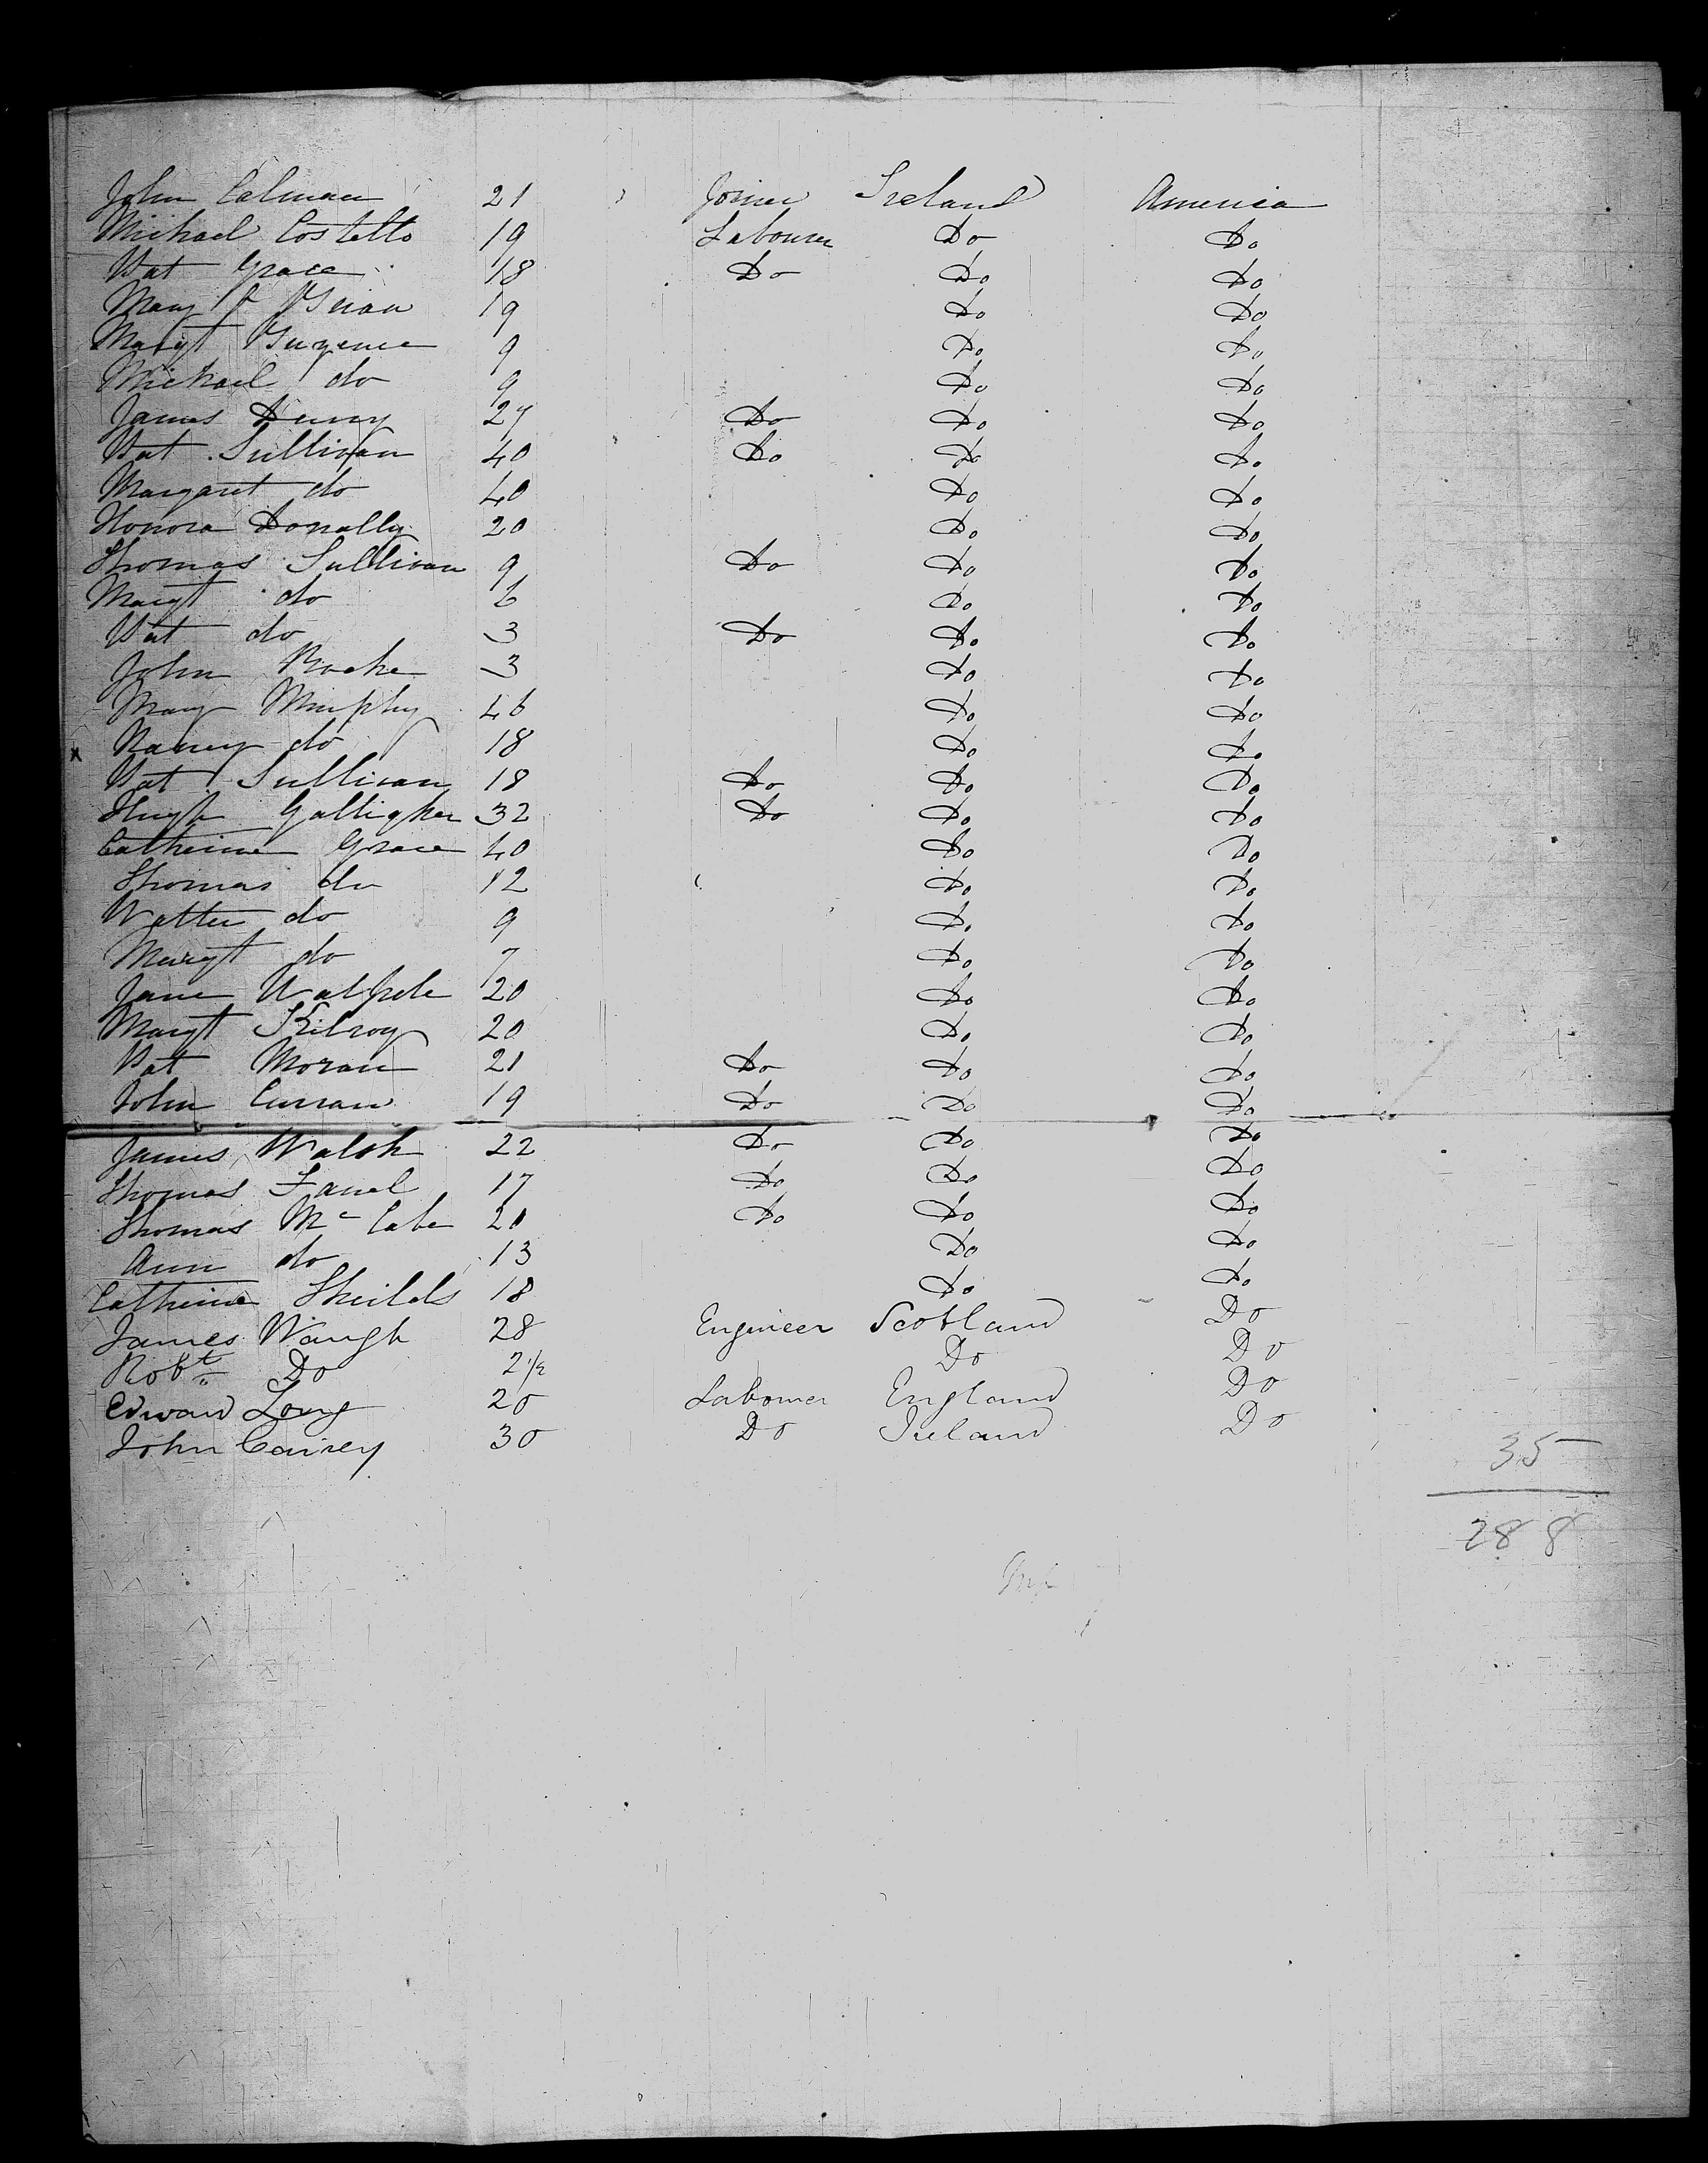 John Colman 21 Joiner Ireland America
Michael Costello 19 Labourer Do Do
Pat Grace 18 Do Do Do
Mary 19 Do Do
Margt 9 Do Do
Michael do 9 Do Do
James Denny 27 Do Do Do
Pat Sullivan 40 Do Do Do
Margaret do 40 Do Do
Honora Donally 20 Do Do
Thomas Sullivan 9 Do Do Do
Margt do 6 Do Do
Pat do 3 Do Do Do
John Roche 3 Do Do
Mary Murphy 46 Do Do
x Nancy do 18 Do Do
Pat Sullivan 18 Do Do Do
Hugh Galligher 32 Do Do Do
Catherine Grace 40 Do Do
Thomas do 12 Do Do
Walter do 9 Do Do
Margt do 7 Do Do
Jane Walpole 20 Do Do
Margt Kilroy 20 Do Do
Pat Moran 21 Do Do Do
John Curran 19 Do Do Do
James Walsh 22 Do Do Do
Thomas 17 Do Do Do
Thomas Mc Cabe 20 Do Do Do
Ann do 13 Do Do
Catherine Sheilds 18 Do Do
James Waugh 28 Engineer Scotland Do
Robt Do 2 1/2 Do Do
Edward Long 20 Labourer England Do
John Cairey 30 Do Ireland Do
35
288